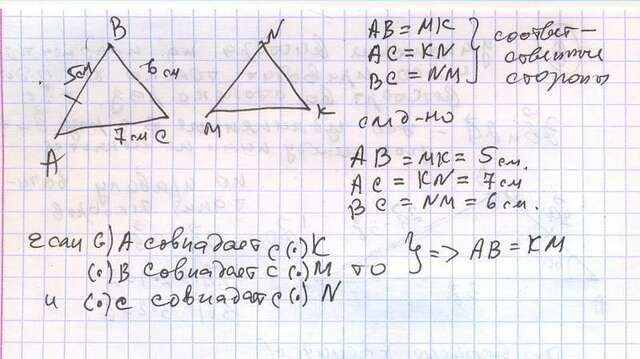 B
5см
6 см
A
7 см
C
N
M
K
AB = MK
AC = KN
BC = NM
соответ-
свенные
стороны
след-но
AB = MK = 5 см.
AC = KN = 7 см
BC = NM = 6 см.
если (·) A совпадает с (·) K
(·) B совпадает с (·) M то } => AB = KM
и (·) C совпадает с (·) N